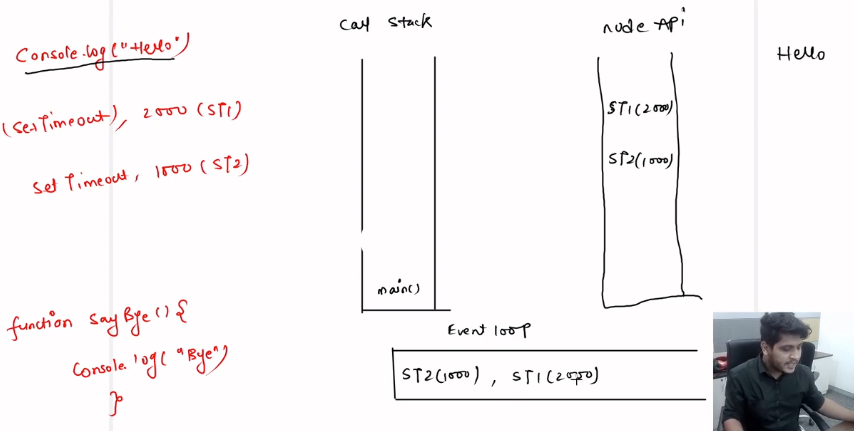 Console.log("Hello")
(setTimeout), 2000 (ST1)
set Timeout, 1000 (ST2)
function sayBye() {
Console.log("Bye")
}
Call Stack
main()
node Api
ST1(2000)
ST2(1000)
Hello
Event loop
ST2(1000), ST1(2000)